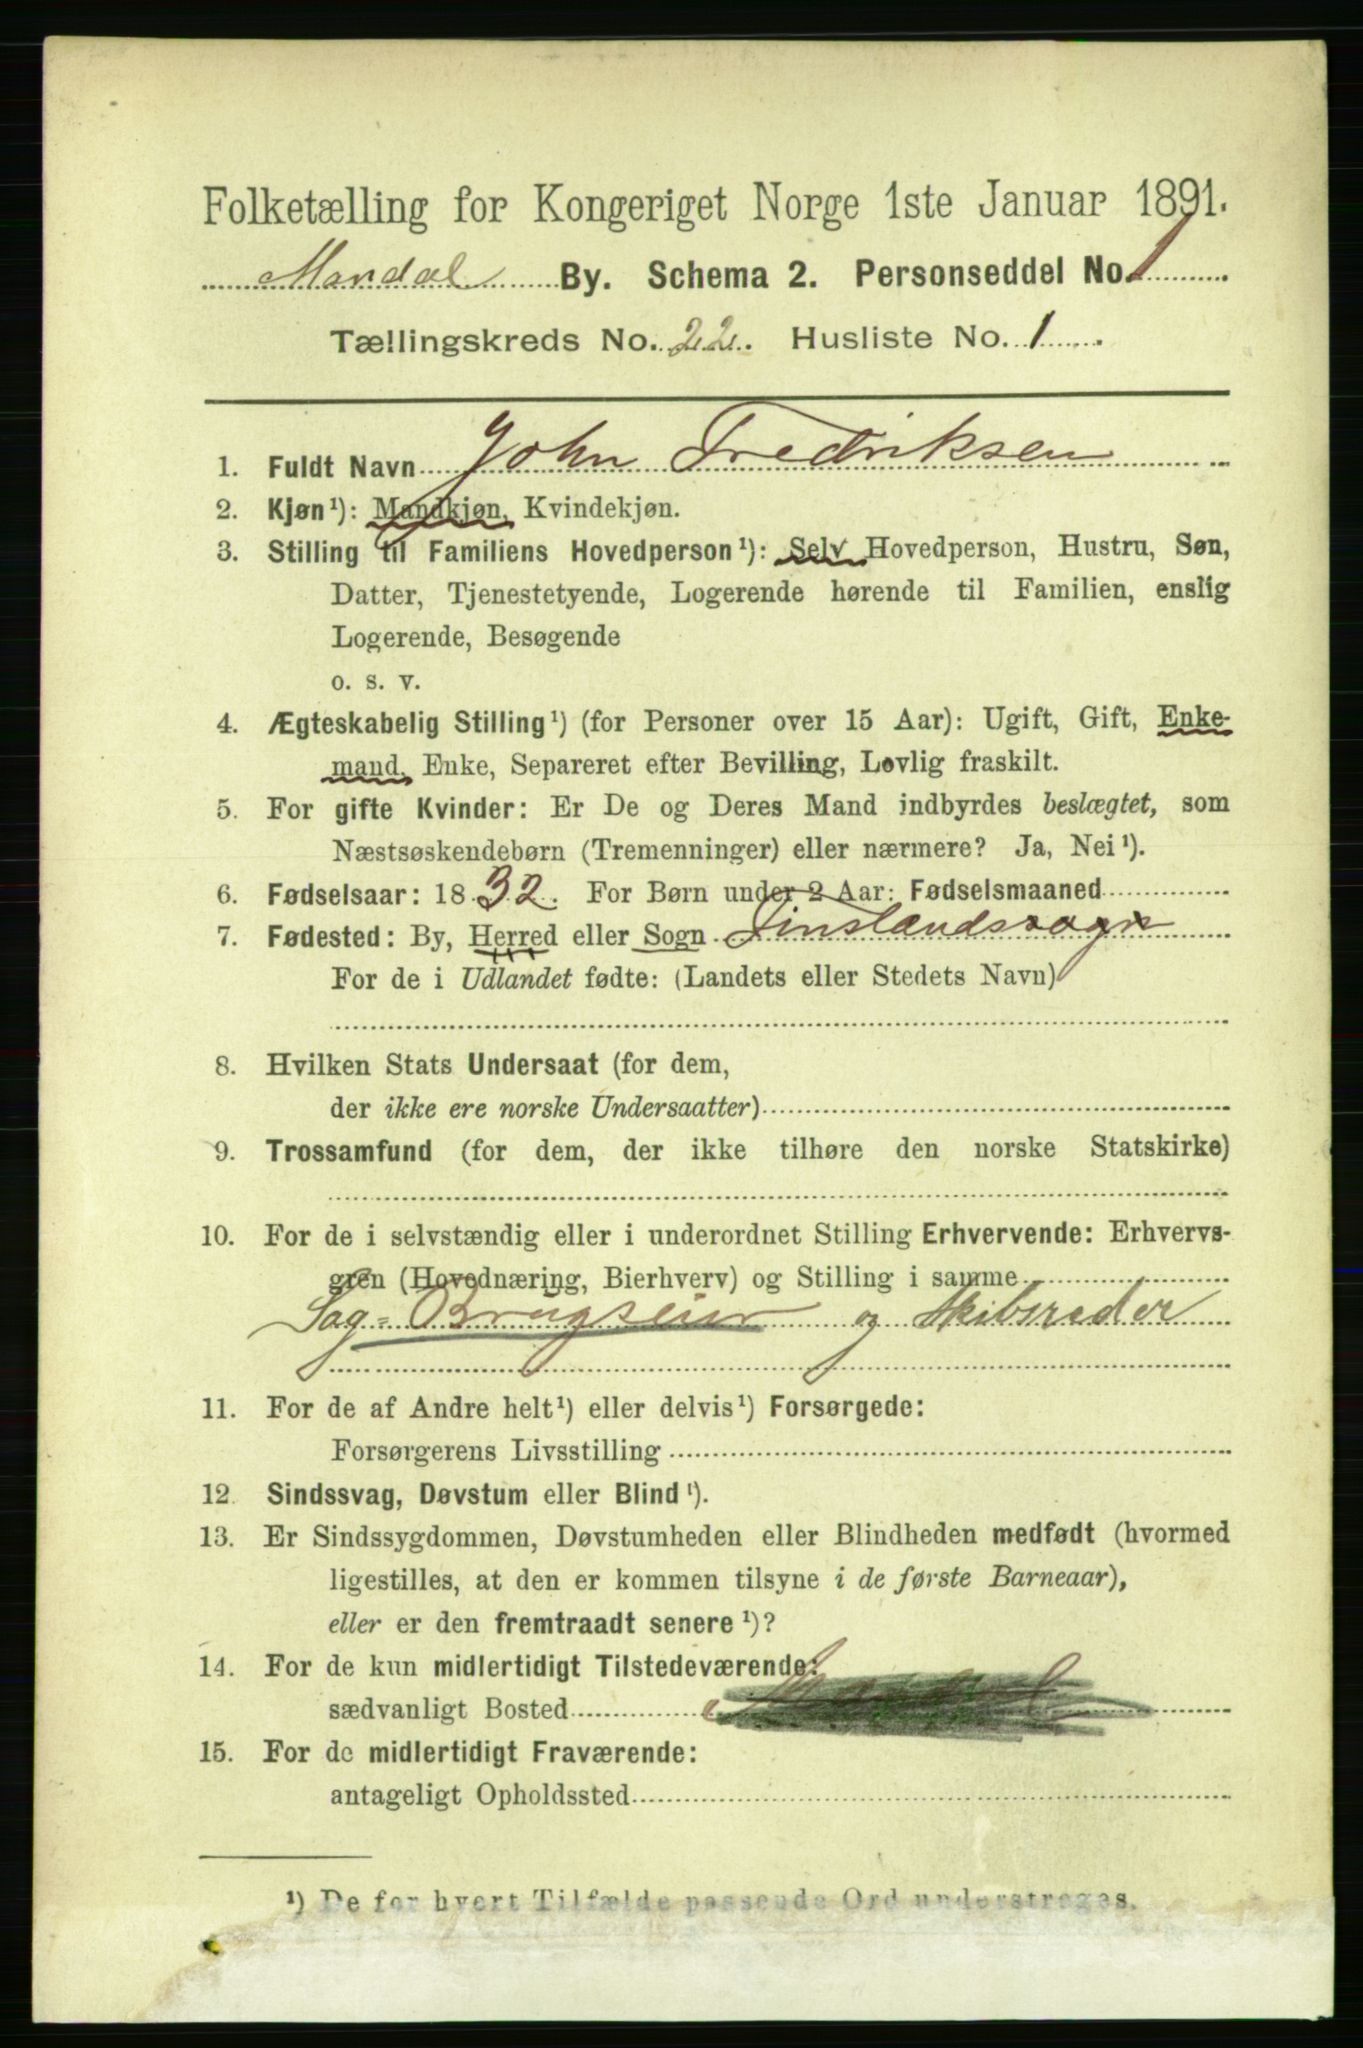 Folketælling for Kongeriget Norge 1ste Januar 1891.
Mandal By. Schema 2. Personseddel No. 1
Tællingskreds No. 22. Husliste No. 1
1. Fuldt Navn John Fredriksen
2. Kjøn¹): Mandkjøn, Kvindekjøn.
3. Stilling til Familiens Hovedperson¹): Selv Hovedperson, Hustru, Søn,
Datter, Tjenestetyende, Logerende hørende til Familien, enslig
Logerende, Besøgende
o. s. v.
4. Ægteskabelig Stilling¹) (for Personer over 15 Aar): Ugift, Gift, Enke-
mand, Enke, Separeret efter Bevilling, Lovlig fraskilt.
5. For gifte Kvinder: Er De og Deres Mand indbyrdes beslægtet, som
Næstsøskendebørn (Tremenninger) eller nærmere? Ja, Nei¹).
6. Fødselsaar: 1832. For Børn under 2 Aar: Fødselsmaaned
7. Fødested: By, Herred eller Sogn Finslandssogn
For de i Udlandet fødte: (Landets eller Stedets Navn)
8. Hvilken Stats Undersaat (for dem,
der ikke ere norske Undersaatter)
9. Trossamfund (for dem, der ikke tilhøre den norske Statskirke)
10. For de i selvstændig eller i underordnet Stilling Erhvervende: Erhvervs-
gren (Hovednæring, Bierhverv) og Stilling i samme
Sag=Brugseier og Skibsreder
11. For de af Andre helt¹) eller delvis¹) Forsørgede:
Forsørgerens Livsstilling
12. Sindssvag, Døvstum eller Blind¹).
13. Er Sindssygdommen, Døvstumheden eller Blindheden medfødt (hvormed
ligestilles, at den er kommen tilsyne i de første Barneaar),
eller er den fremtraadt senere¹)?
14. For de kun midlertidigt Tilstedeværende:
sædvanligt Bosted Mandal
15. For de midlertidigt Fraværende:
antageligt Opholdssted
¹) De for hvert Tilfælde passende Ord understreges.